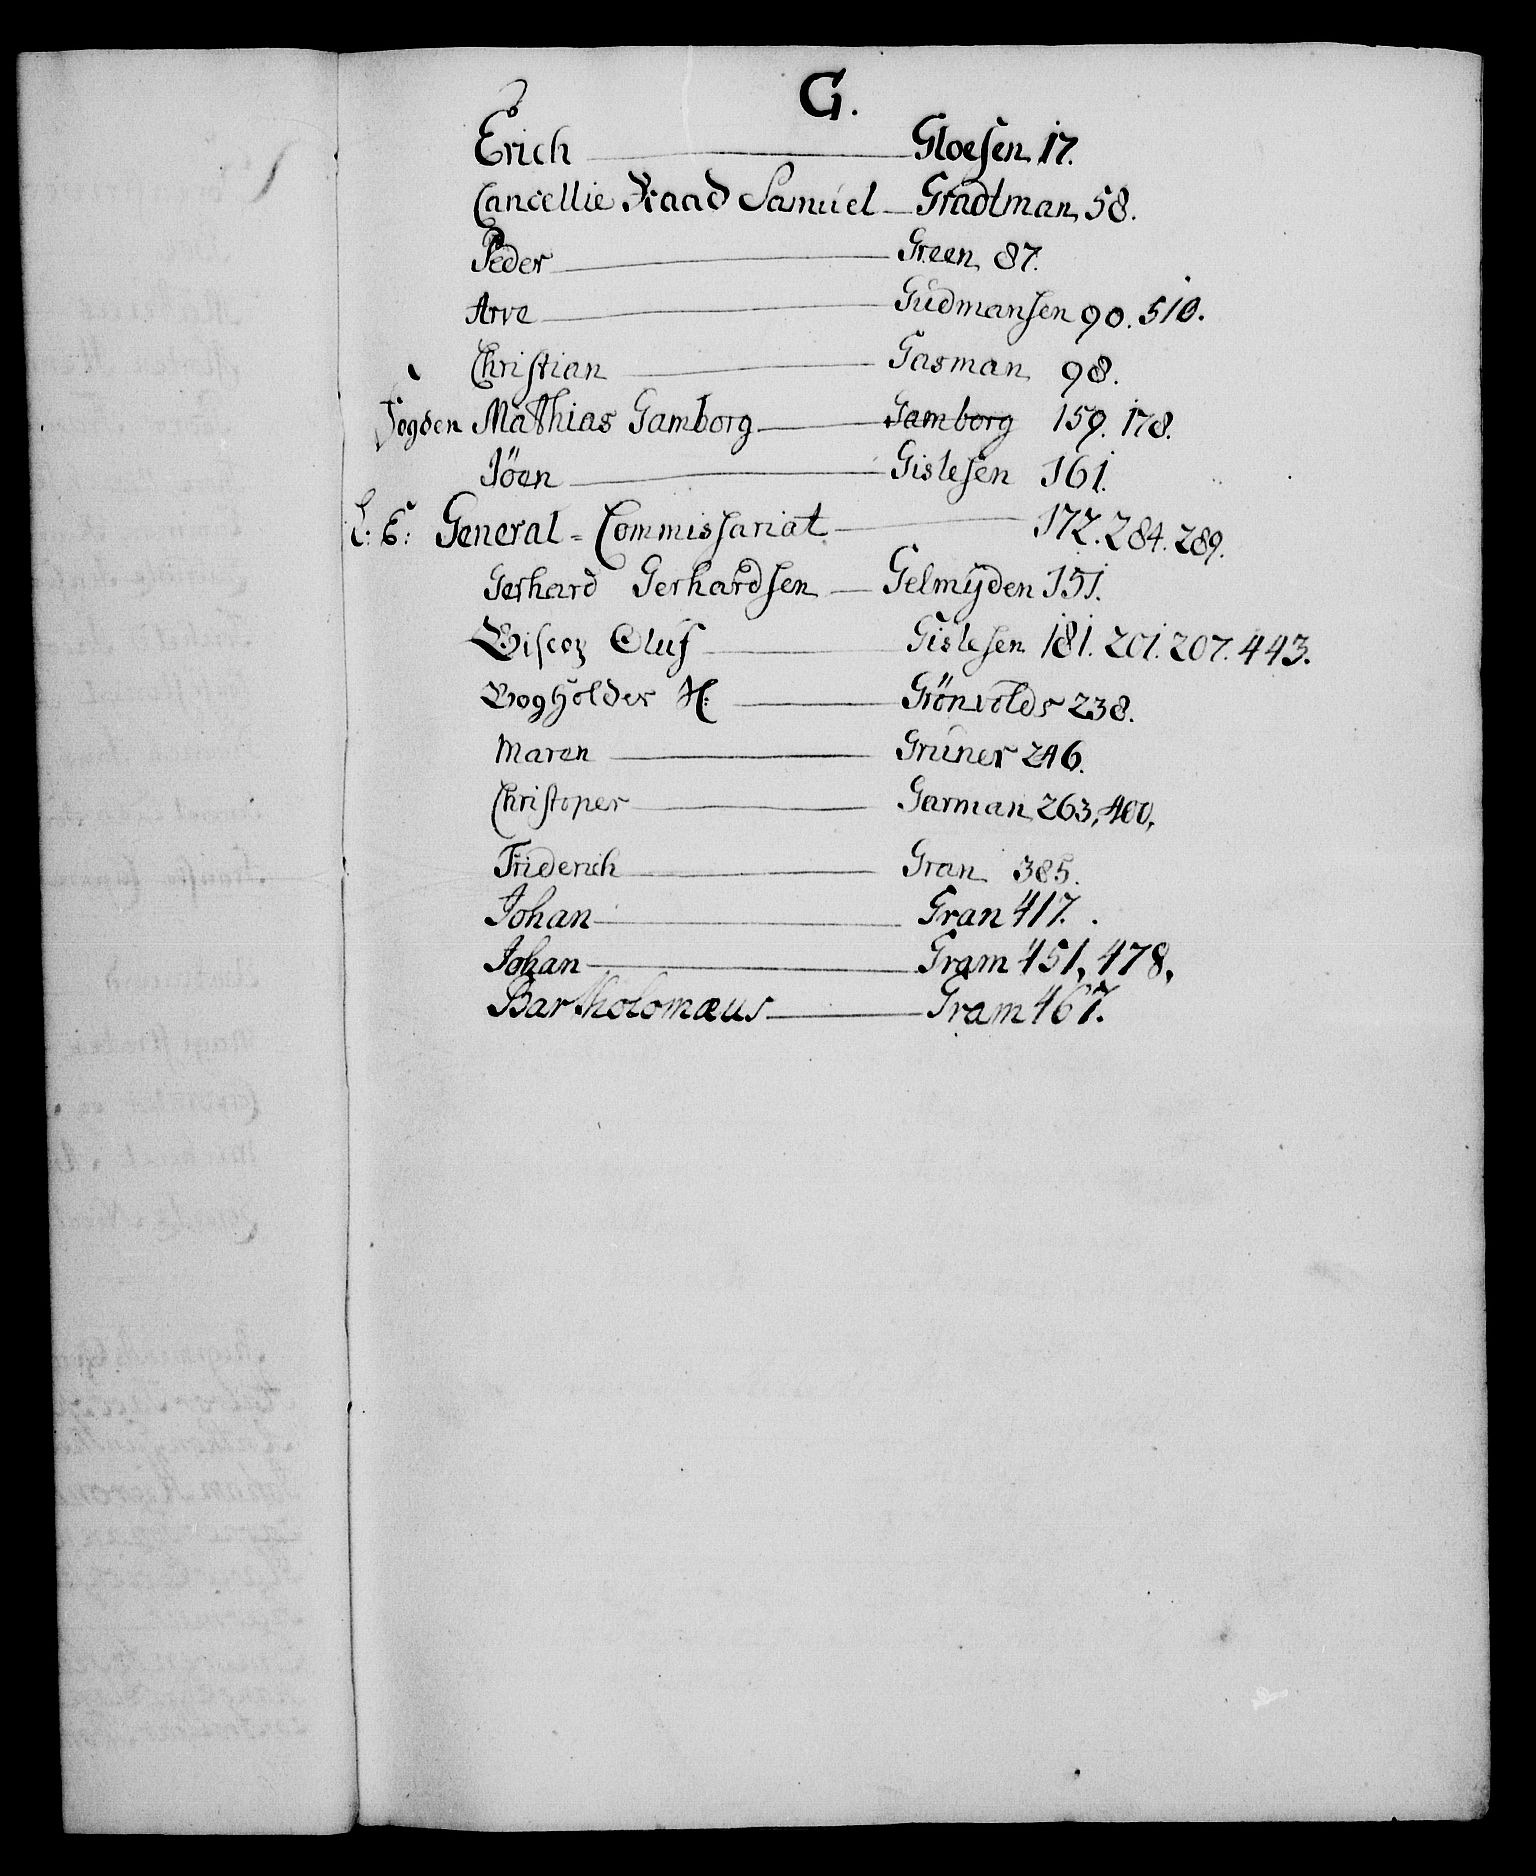 G.
Erich — Gloesen 17.
Cancellie Raad Samuel — Gradtman 58.
Peder — Green 87.
Arve — Gudmansen 90. 510.
Christian — Gasman 98.
Fogden Mathias Gamborg — Gamborg 159. 178.
Jöen — Gislesen 161.
General-Commissariat — 172. 284. 289.
Gerhard Gerhardsen — Gelmÿden 151.
Biscop Oluf — Gislesen 181. 201. 207. 443.
Bogholder H: — Grönvolds 238.
Maren — Grüner 246.
Christoper — Garman 263, 400,
Friderich — Gran 385.
Johan — Gran 417.
Johan — Gram 451, 478,
Bartholomæus — Gram 467.